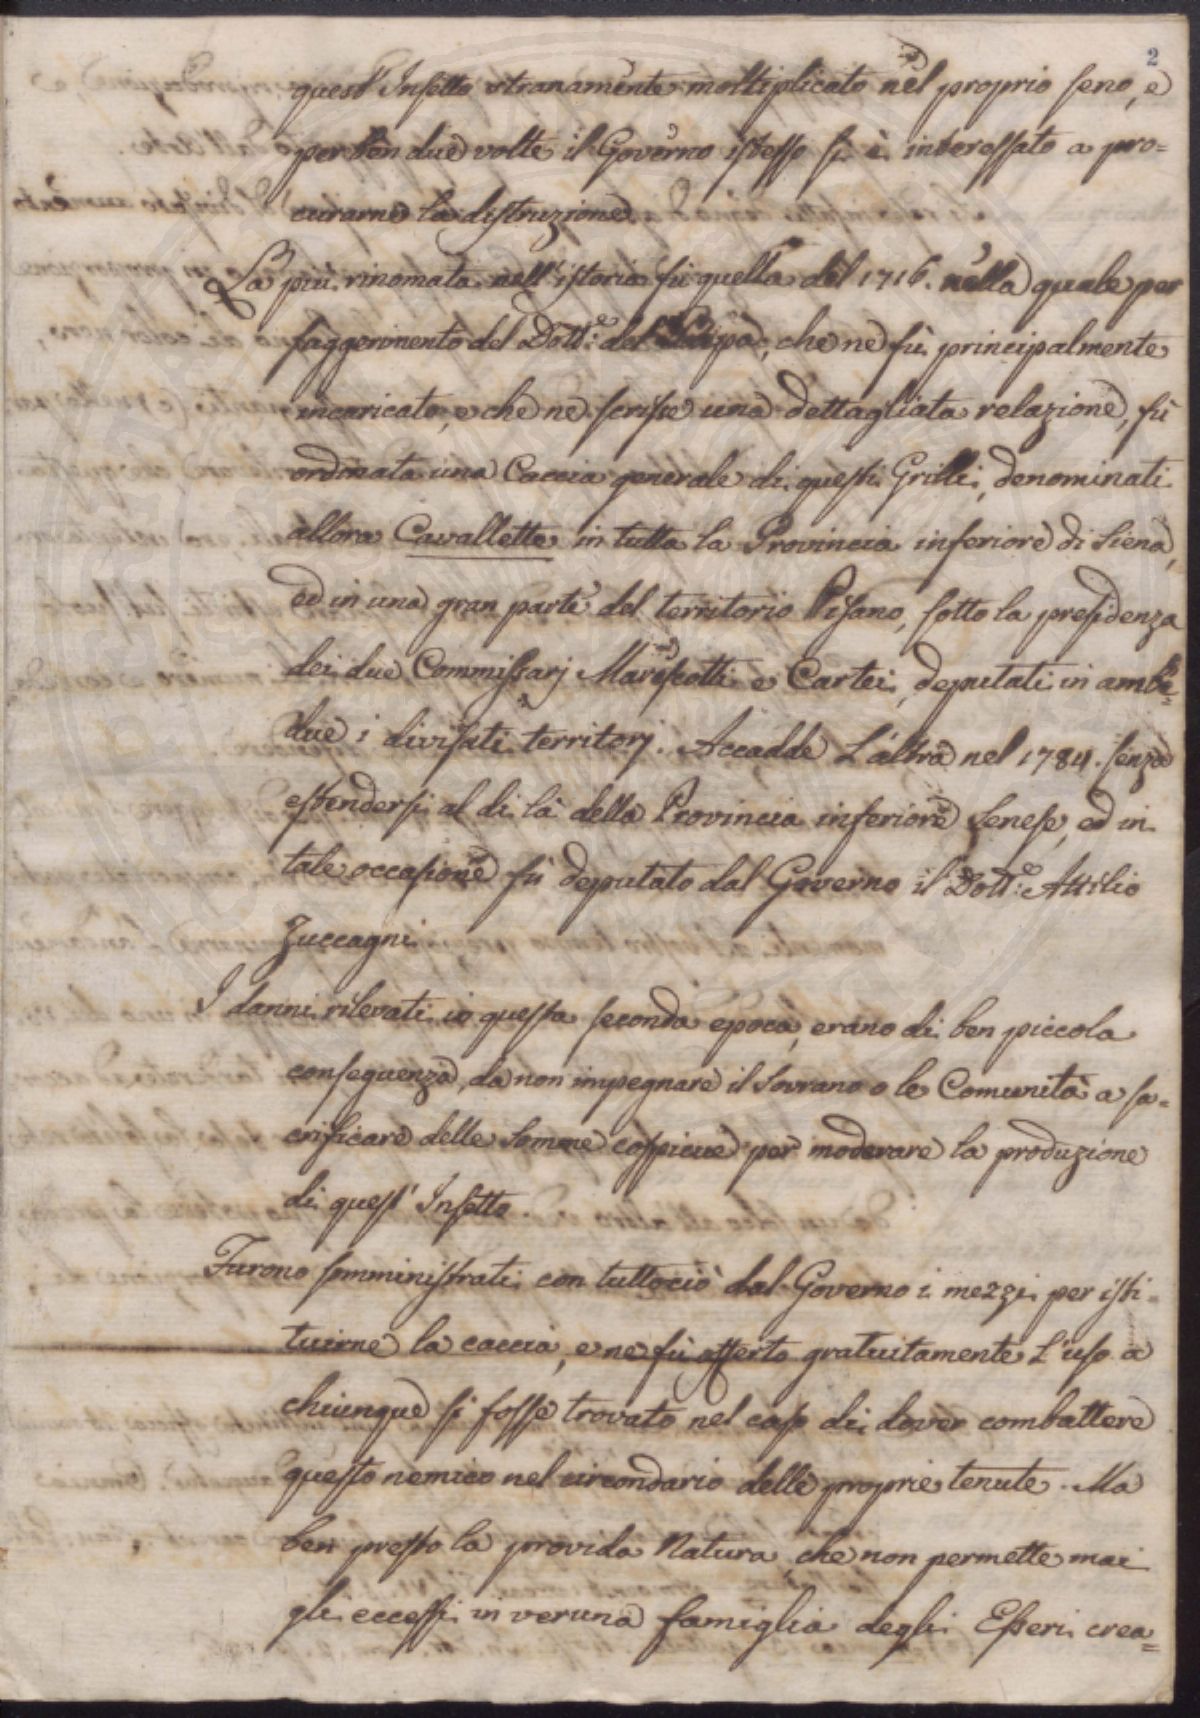 2
quest' Insetto stranamente moltiplicato nel proprio seno, e
per ben due volte il Governo istesso si è interessato a pro=
curarne la distruzione.
La più rinomata nell'istoria fù quella del 1716. nella quale per
suggerimento del Dott.e del Papa, che ne fù principalmente
incaricato, e che ne scrisse una dettagliata relazione, fù
ordinata una Caccia generale di questi Grilli, denominati
allora Cavallette in tutta la Provincia inferiore di Siena,
ed in una gran parte del territorio Pisano, sotto la presidenza
dei due Commissarj Marescotti e Cartei, deputati in ambe=
due i divisati territorj. Accadde l'altra nel 1784. senza
estendersi al di là della Provincia inferiore Senese, ed in
tale occasione fù deputato dal Governo il Dott.e Attilio
Zuccagni.
I danni rilevati in questa seconda epoca, erano di ben piccola
conseguenza, da non impegnare il Sovrano o le Comunità a sa=
crificare delle Somme cospicue per moderare la produzione
di quest' Insetto.
Furono somministrati con tuttociò dal Governo i mezzi per isti=
tuirne la caccia, e ne fù offerto gratuitamente l'uso a
chiunque si fosse trovato nel caso di dover combattere
questo nemico nel circondario delle proprie tenute. Ma
ben presto la provida Natura, che non permette mai
gli eccessi in veruna famiglia degli Esseri crea=